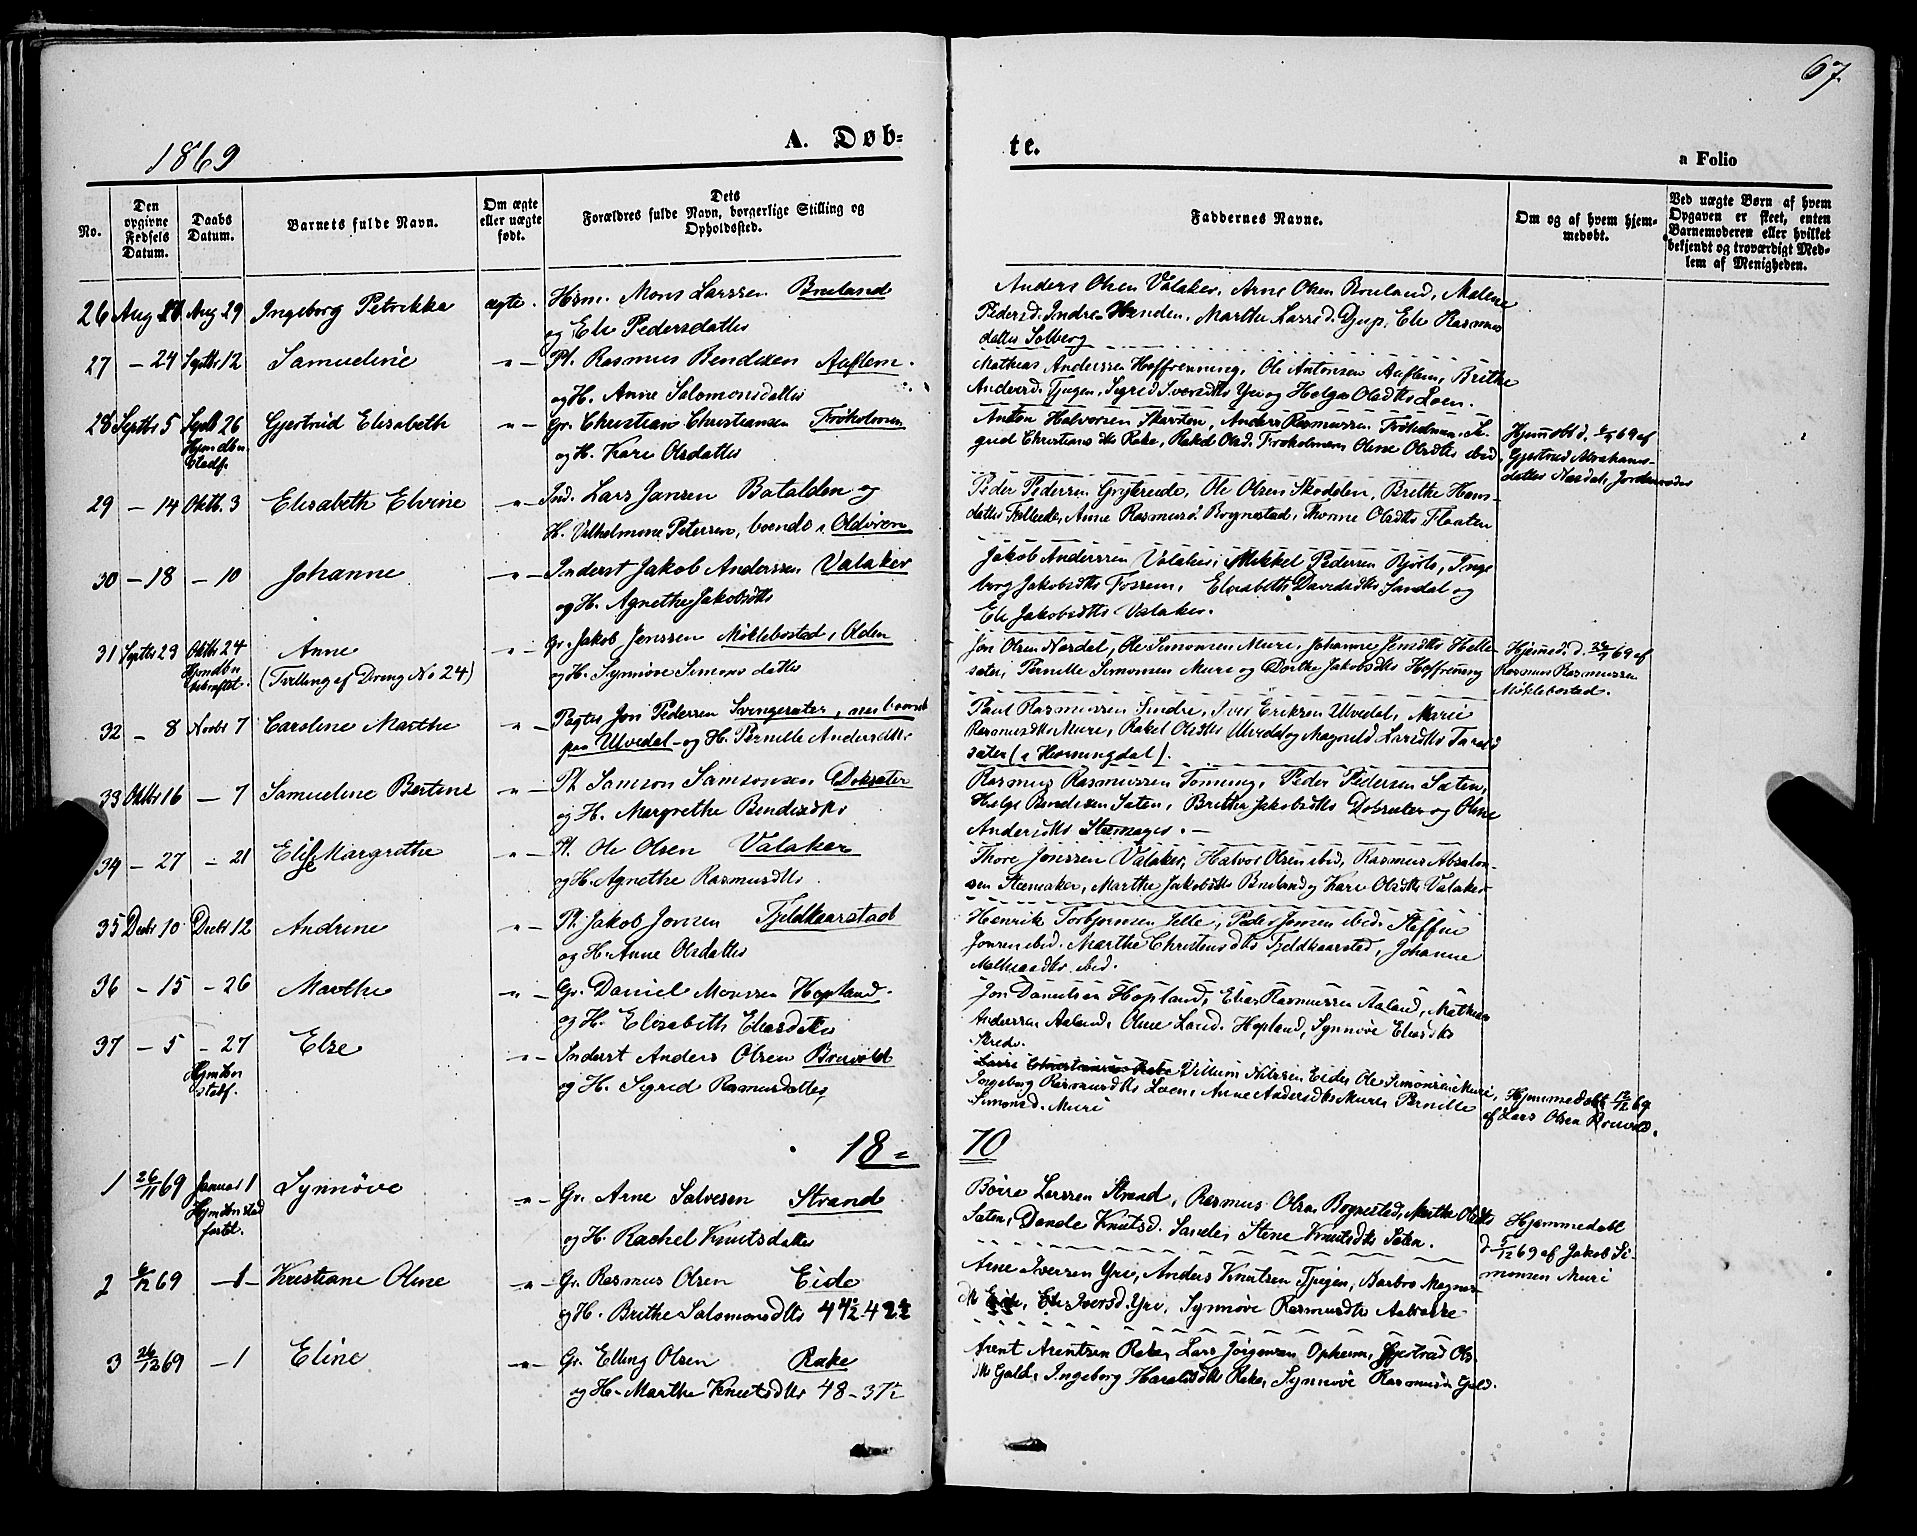 67.
1869
A. Døb-
te.
a Folio
No.
Den opgivne Fødsels Datum.
Daabs Datum.
Barnets fulde Navn.
Om ægte eller uægte født.
Dets Forældres fulde Navn, borgerlige Stilling og Opholdssted.
Faddernes Navne.
Om og af hvem hjemmedøbt.
Ved uægte Børn af hvem Opgaven er skeet, enten Barnemoderen eller hvilket bekjendt og troværdigt Medlem af Menigheden.
26 Aug Aug 29 Ingeborg Petrikka ægte. Hsm. Mons Larssen Bruland
og Eli Pedersdatter
Anders Olsen Valaker, Arne Olsen Bruland, Malene
Pedersd. Indre Hunden, Marthe Larsd. Djup, Eli Rasmus
datter Solberg
27 - 24 Septbr 12 Samueline -"- Pl. Rasmus Bendixen Auflem.
og H. Anne Salomonsdatter
Mathias Anderssen Hoffrenning, Ole Antonsen Auflem, Brithe
Andersd. Tjugen, Sigrid Iversdtr Yri og Helga Olsdtr Loen.
28 Septbr 5 Septb 26 Gjertrud Elisabeth -"- Gr. Christian Christiansen Frøholmen
Hjemdbn
Stadf.
og H. Kari Olsdatter
Anton Halvorsen Skarsten, Anders Rasmussen Frøholmen, Si-
grid Christiansdtr Rake, Rakel Olsd. Frøholmen, Oline Olsdtr ibid,
Hjemdbt d. 69 af
Gjertrud Abrahams-
datter Nesdal, Jordemoder
29 - 14 Oktb. 3 Elisabeth Elvine -"- Ind. Lars Jansen Batalden og
H. Vilhelmine Petersen, boende i Oldøren
Peder Pedersen Gryterude, Ole Olsen Skadalen, Brithe Hans-
datter Tellecke, Anne Rasmusd. Bognestad, Thorine Olsdtr Flaaten
30 - 18 - 10 Johanne -"- Inderst Jakob Anderssen Valaker
og H. Agnethe Jakobsdtr
Jakob Anderssen Valaker, Mikkel Pedersen Bjørlo, Inge
borg Jakobsdtr Fossem, Elisabeth Davidsdtr Sandal og
Eli Jakobsdtr Valaker.
31 Septbr 23 Oktbr 24 Anne -"- Gr. Jakob Jenssen Møklebostad, Olden
Hjemdbn
bekræftet.
(Tvilling af Dreng No 24)
og H. Synnøve Simonsdatter
Jon Olsen Nesdal, Ole Simonsen Muri, Johanne Jensdtr Helle
sæter, Pernille Simonsen Muri og Dorthe Jakobsdtr Hoffrenning
Hjemd. d. 69 af
Rasmus Rasmussen
Møklebostad.
32 - 8 Novbr 7 Caroline Marthe -"- Pagter Jon Pedersen Svingesæter, nu boende
paa Ulvedal og H. Pernille Andersdtr.
Paul Rasmussen Sindre, Iver Eriksen Ulvedal, Marie
Rasmusdtr Muri, Rakel Olsdtr Ulvedal og Magnild Larsdtr Tarald
sæter (i Hornungdal).
33 Oktbr 16 - 7 Samueline Bertine -"- Pl. Samson Samsonsen Dokset
og H. Margrethe Bendixdtr
Rasmus Rasmussen Tonning, Peder Pedersen Sæten,
Helge Bendixen Sæten, Brithe Jakobsdtr Dobsæter og Oline
Andersdtr
34 - 27 - 21 Elise Margrethe -"- Pl. Ole Olsen Valaker
og H. Agnethe Rasmusdtr.
Thore Jonssen Valaker, Halvor Olsen ibid, Rasmus Absalon-
sen Stenaker, Marthe Jakobsdtr Bruland og Kari Olsdtr Valaker
35 Decbr 10 Decbr 12 Andrine -"- Pl. Jakob Jonsen Fjeldkaarstad
og H. Anne Olsdatter
Henrik Torbjornsen Jelle, Peder Jonsen ibid. Steffine
Jonsen ibid. Marthe Christensdtr Fjeldkaarstad, Johanne
ibid.
36 - 15 - 26 Marthe -"- Gr. Daniel Monssen Hopland.
og H. Elisabeth Eliasdatter
Jon Danielsen Hopland, Elias Rasmussen Aaland, Mathias
Anderssen Aaland, Oline Hopland, Synnøve Eliasdtr
Skrede.
37 - 5 - 27 Else -"- Inderst Anders Olsen Bruvold
Hjemdbn
stadf.
og H. Sigrid Rasmusdatter,
Villum Nilssen Eide, Ole Simonsen Muri,
Ingeborg Rasmusdtr Loen, Anne Andersdtr Muri, Pernille
Simonsd. Muri
Hjemmedøbt 12/12 69
af Lars Olsen Bruvold.
18= 70
1 26/11 69 Januar 1 Synnøve -"- Gr. Arne Salvesen Strand
Hjemdbn stad
fæstet.
og H. Rachel Knutsdatter
Børre Larssen Strand, Rasmus Olsen Bognestad, Marthe Olsdtr
Sæten, Dande Knutsd. Sande, Stene Knutsdtr Sæten.
Hjemmedøbt
d. 5/12 69 af Jakob Si-
monsen Muri
2 6/12 69 -1- Kristiane Oline -"- Gr. Rasmus Olsen Eide
og H. Brithe Salomonsdtr
Arne Iversen Yri, Anders Knutsen Tjugen, Barbro Magnus-
dtr Eide, Eli Iversd. Yri, Synnøve Rasmusdtr
3 26/12 69 -1 Eline -"- Gr. Elling Olsen Rake
og H. Marthe Knutsdtr 48-37½
Arent Arentsen Rake, Lars Jørgensen Opheim, Gjertrud Ols-
dtr Gald, Ingeborg Haraldsdtr Rake, Synnøve Rasmusd. Gjeld.